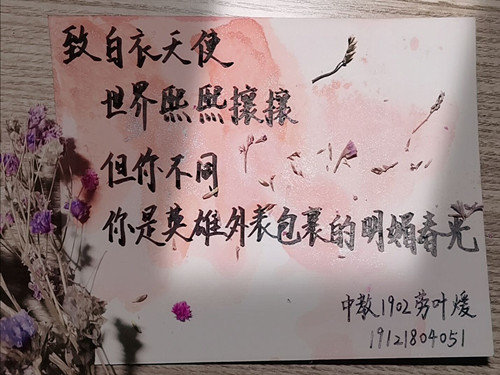 致白衣天使
世界熙熙攘攘
但你不同
你是英雄外表包裹的明媚春光
中教1902 劳叶媛
19121804051